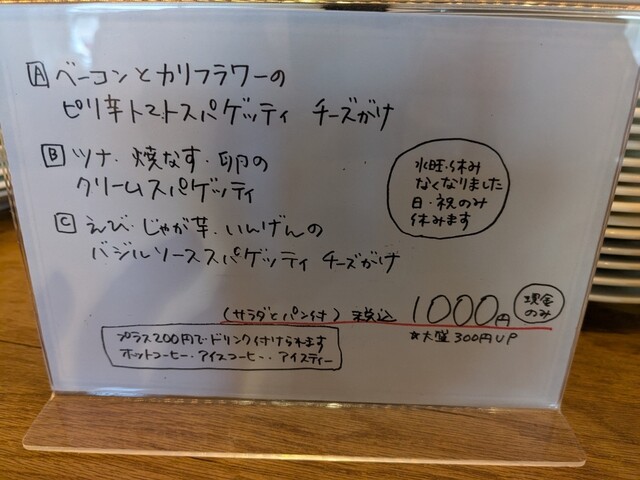 A ベーコンとカリフラワーの
ピリ辛トマトスパゲッティ チーズがけ
B ツナ・焼なす・卵の
クリームスパゲッティ
水曜・休み
なくなりました
日・祝のみ
休みます
C えび・じゃが芋・いんげんの
バジルソーススパゲッティ チーズがけ
(サラダとパン付) 税込 1000円
現金
のみ
★大盛300円UP
プラス200円で・ドリンク付けられます
ホットコーヒー・アイスコーヒー・アイスティー